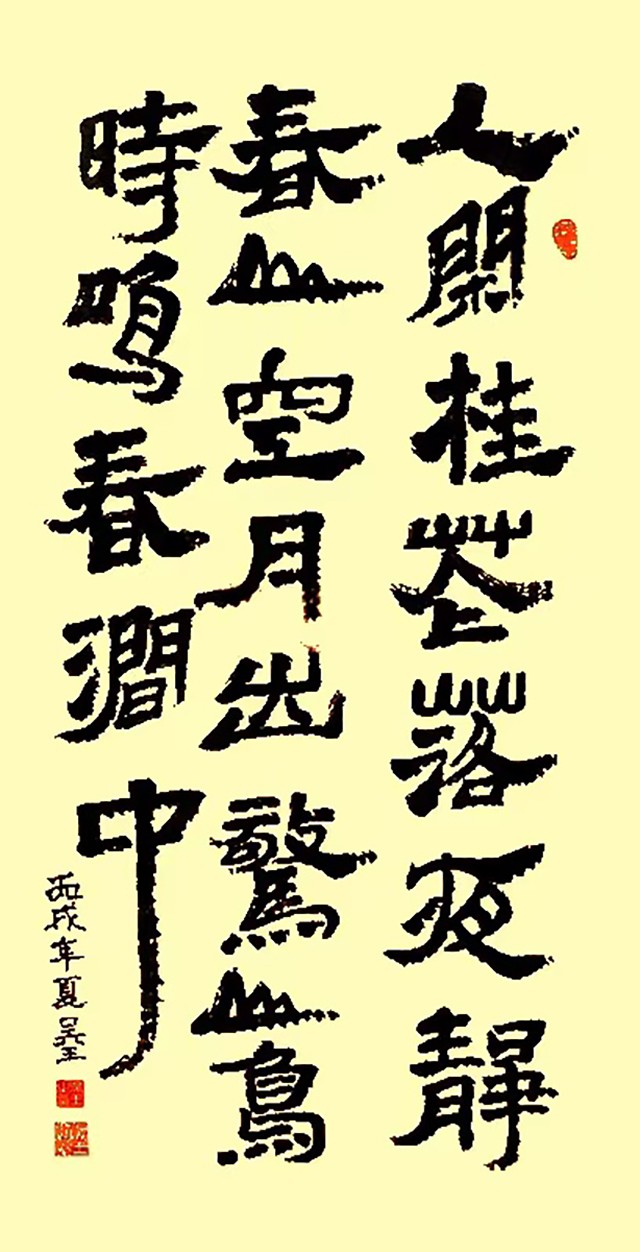 人閑桂花落夜靜
春山空月出驚山鳥
時鳴春澗中
丙戌年夏